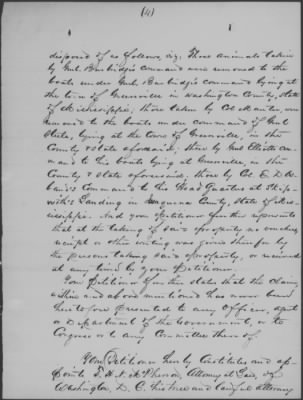 (4)
disposed of as follows, viz; Those animals taken
by Genl. Burbridge's command were removed to the
boats under Genl. Burbridge's command lying at
the town of Greenville in Washington County, State
of Mississippi; those taken by Col. were
removed to the boats under command of Genl.
Steele, lying at the town of Greenville, in the
County & State aforesaid; those by Genl. Ellett's com-
mand to his boats lying at Greenville, in the
County & State aforesaid; those by Col. E. D. Os-
band's command to the Head Quarters at Skip-
with's Landing in Issaquena County, State of Mis-
sissippi. And your Petitioner further represents
that at the taking of said property no voucher,
receipt or other writing was given therefor by
the persons taking said property, or received
at any time by your Petitioner.
Your Petitioner further states that the claim
within and above mentioned has never been
heretofore presented to any Officer, agent
or Department of the Government, or to
Congress or to any Committee thereof.
Your Petitioner hereby constitutes and ap-
points T. H. N. McPherson, Attorney at Law, of
Washington, D. C. his true and lawful attorney